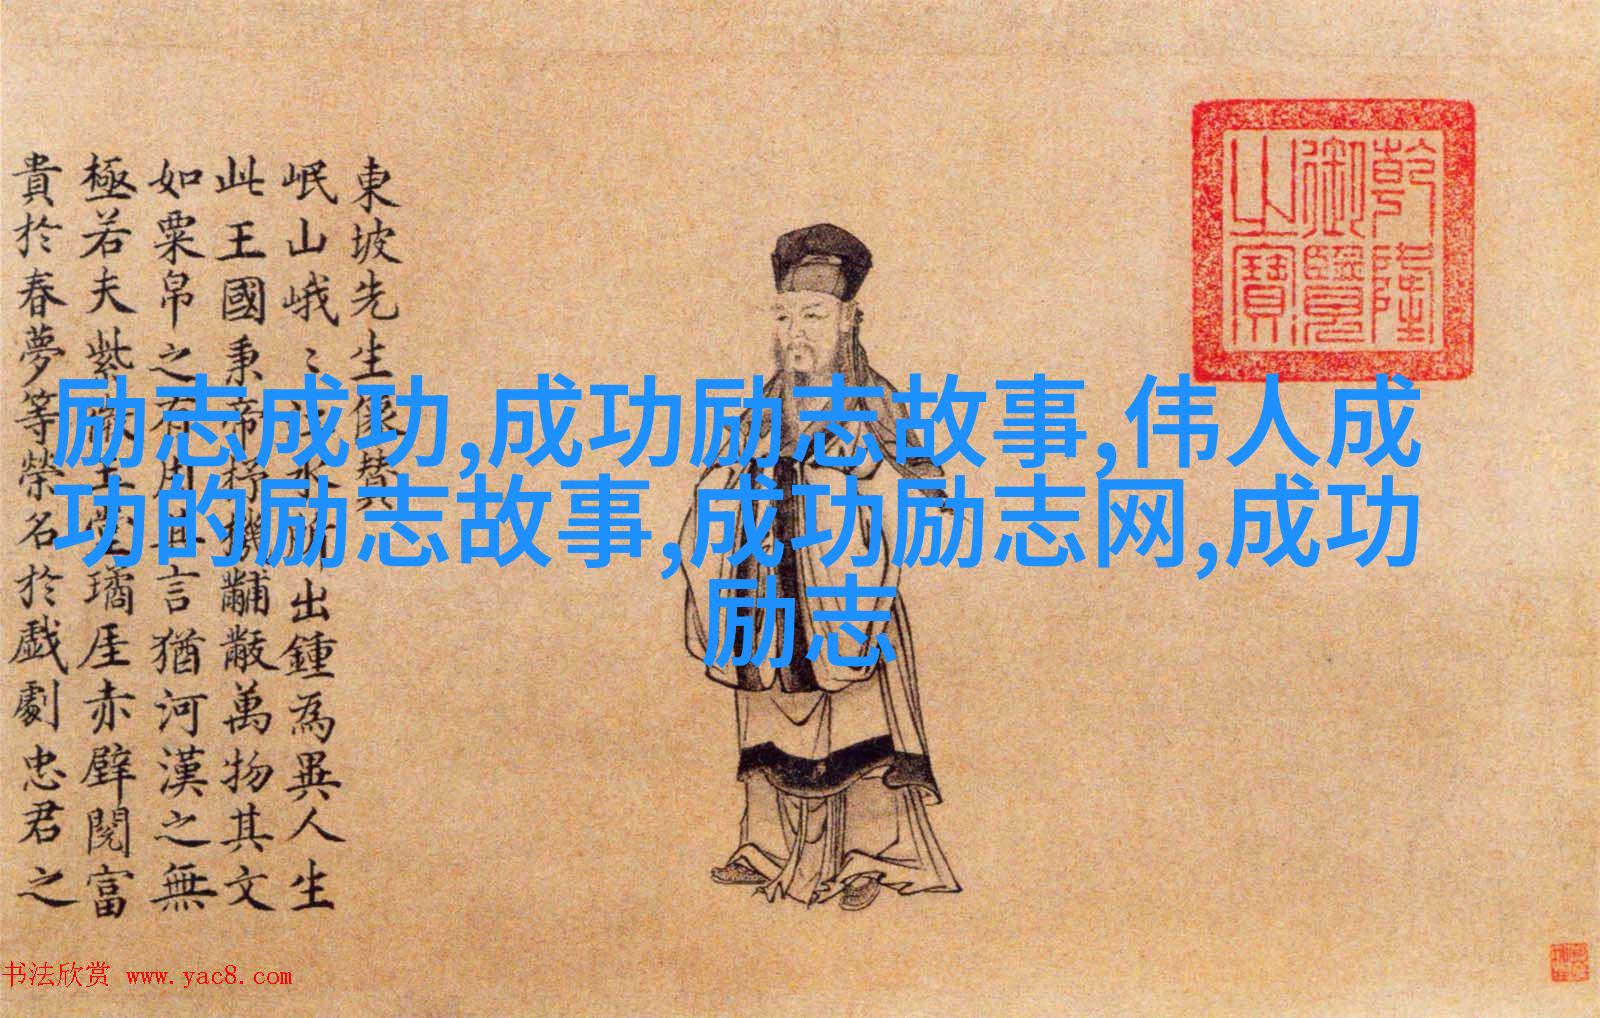 励志成功,成功励志故事,伟人成
功的励志故事,成功励志网,成功
励志
乾隆
御覽
之寶
東坡先生像贊
岷山峨〻江水所出鍾為異人生
此王國秉帝杼機黼黻萬物其文
如粟帛之有用其言猶河漢之無
極若夫紫微玉堂璚厓赤壁閱富
貴於春夢等榮名於戲劇忠君之
书法欣赏 www.yac8.com